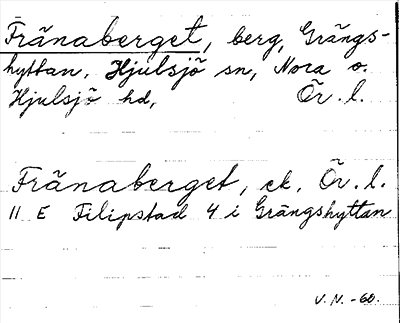 Fränaberget, berg, Grängs-
hyttan, Hjulsjö sn, Nora o.
Hjulsjö hd, Ör. l.
Fränaberget, ek. Ör. l.
11 E Filipstad 4 i Grängshyttan
V. N. -60.